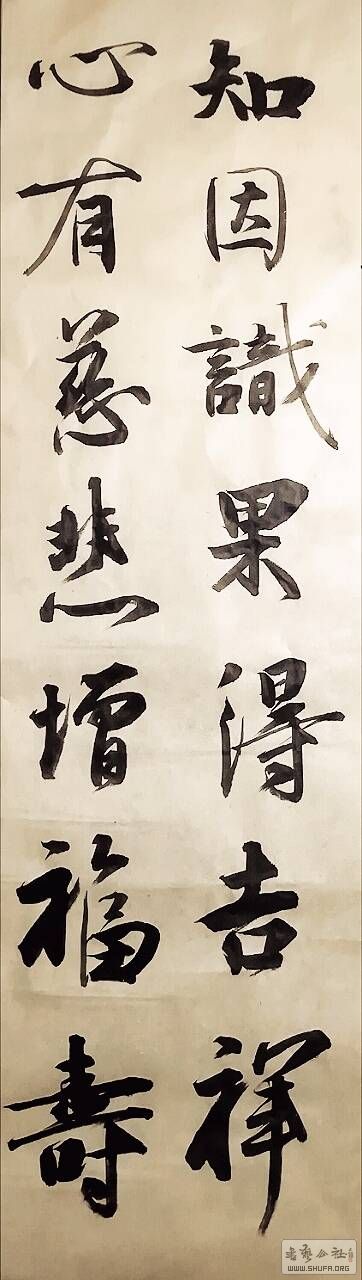 知因識果得吉祥
心有慈悲增福壽
WWW.SHUFA.ORG